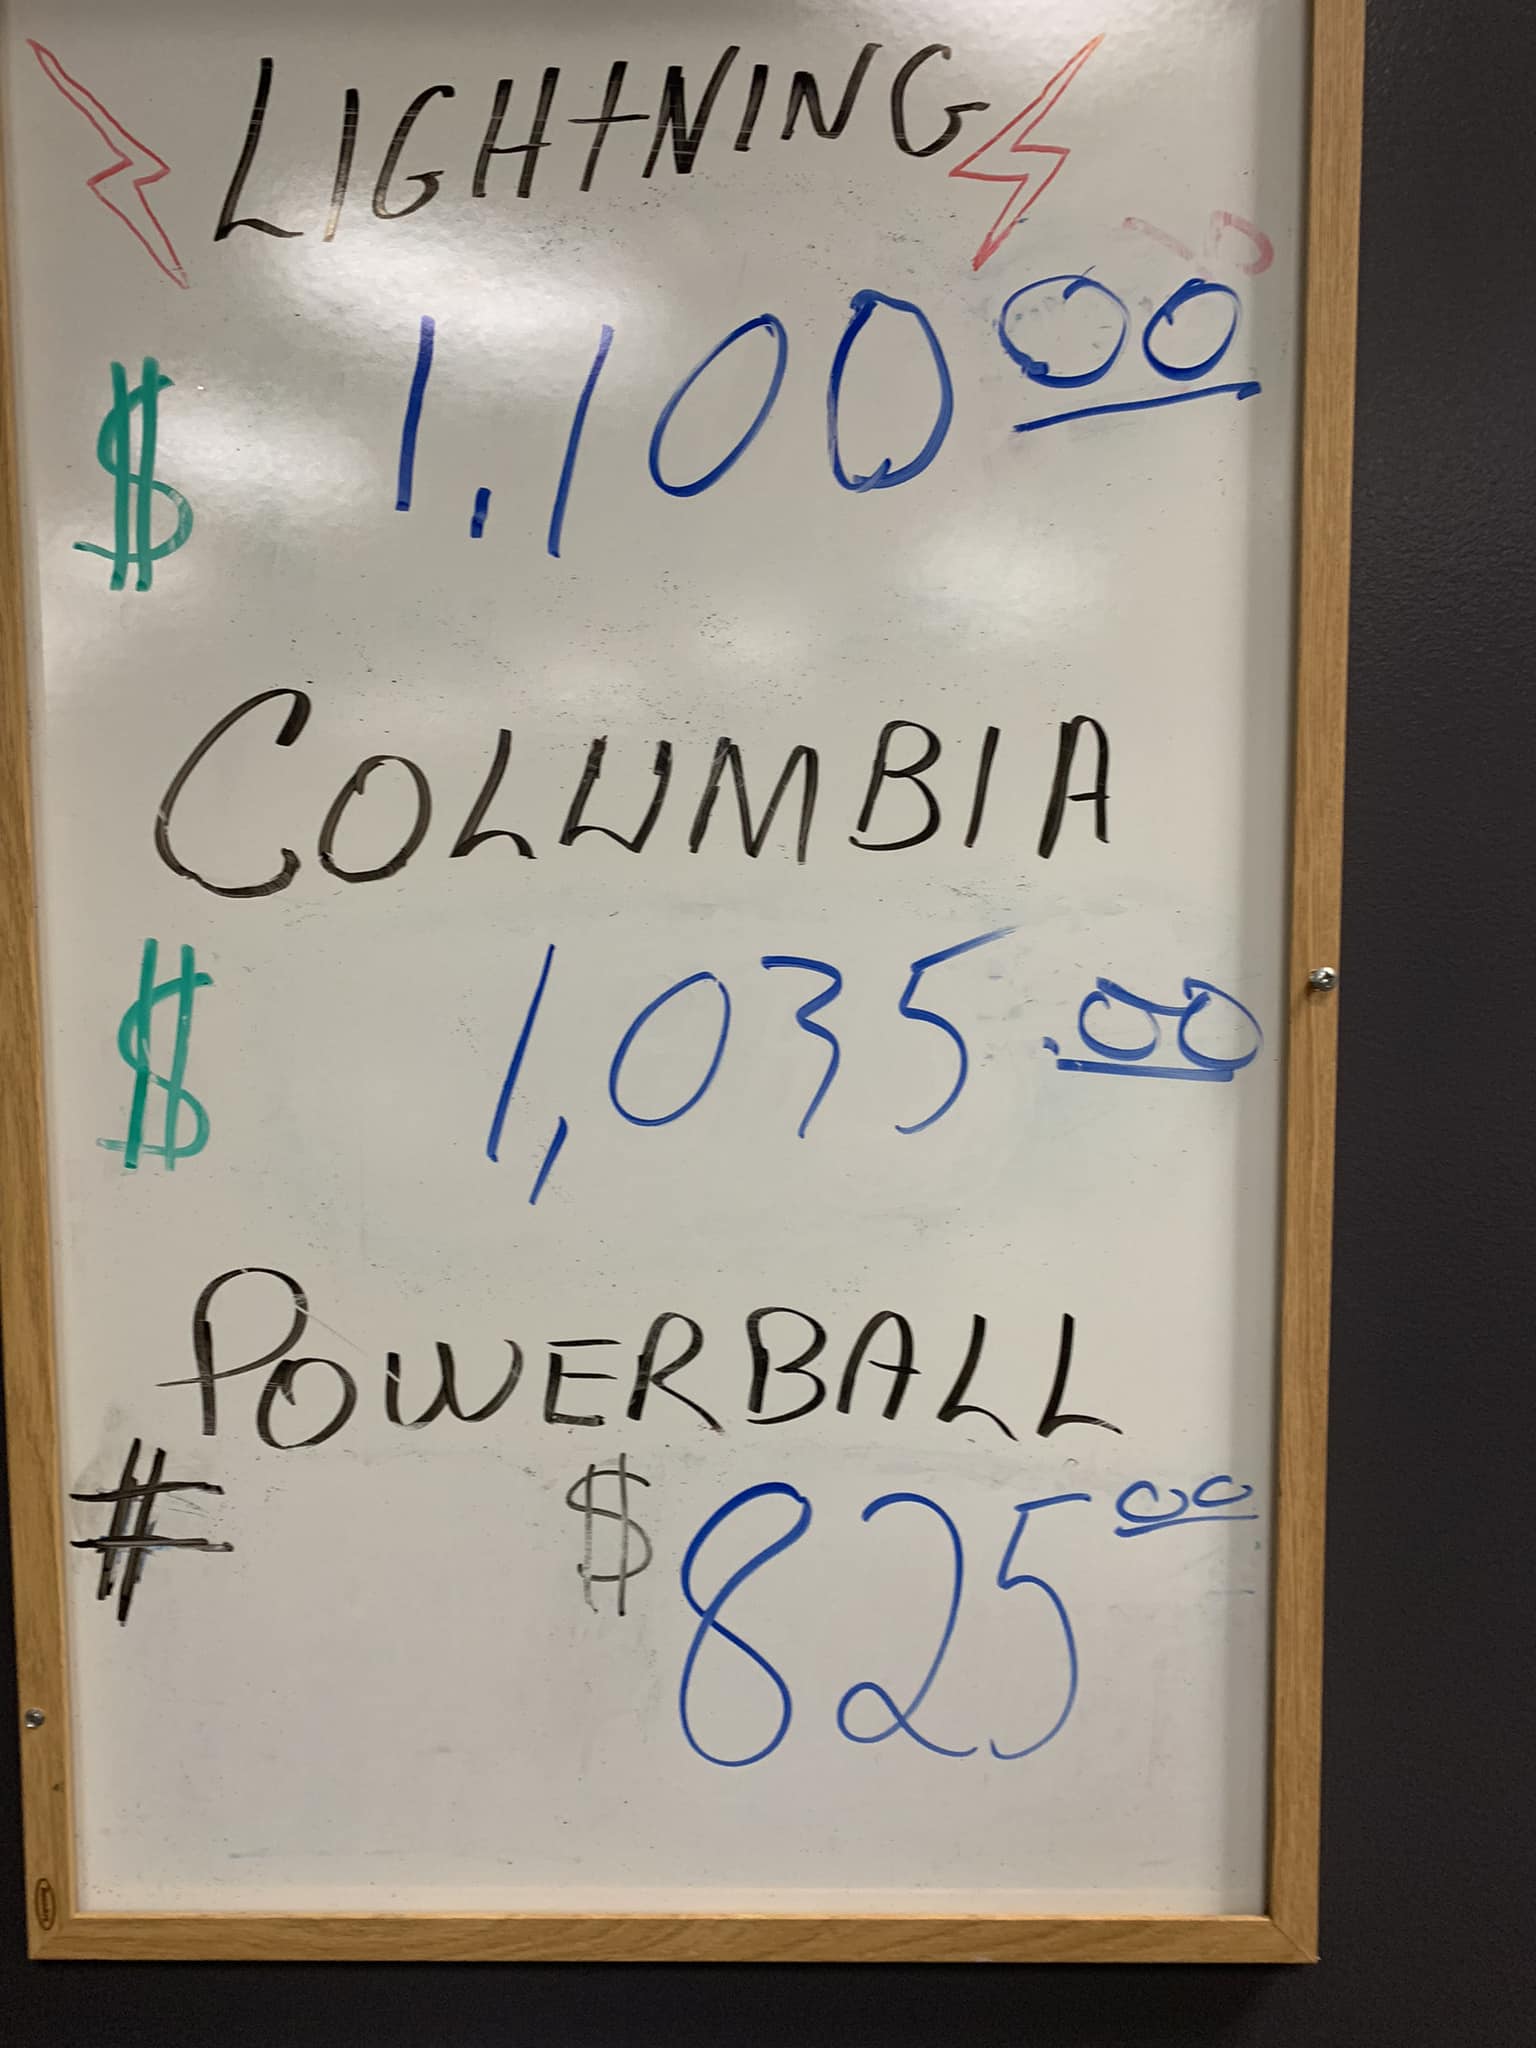 LIGHTNING
$ 1,100 00
COLUMBIA
$ 1,035.00
POWERBALL
# $ 825 00